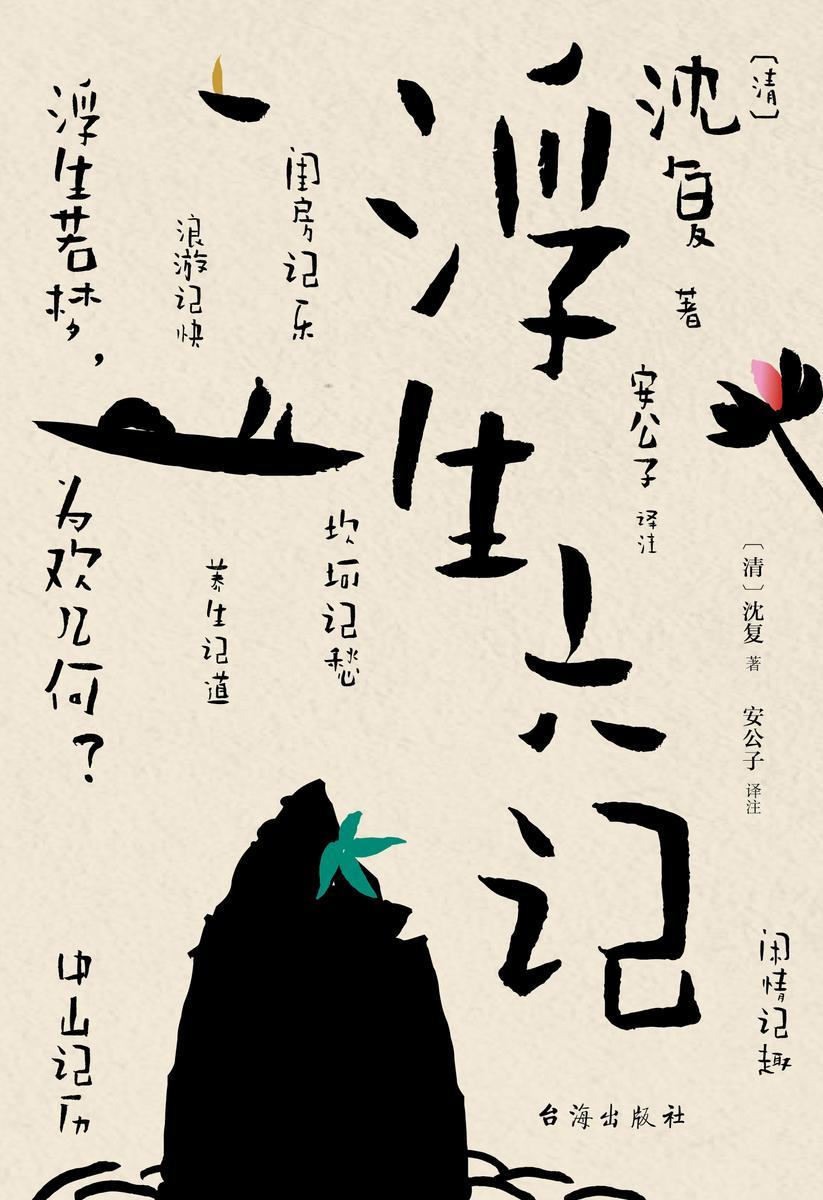 浮生六记
〔清〕
沈复 著
安公子 译注
〔清〕沈复 著 安公子 译注
闲情记趣
闺房记乐
浪游记快
坎坷记愁
养生记道
浮生若梦，
为欢几何？
中山记历
台海出版社